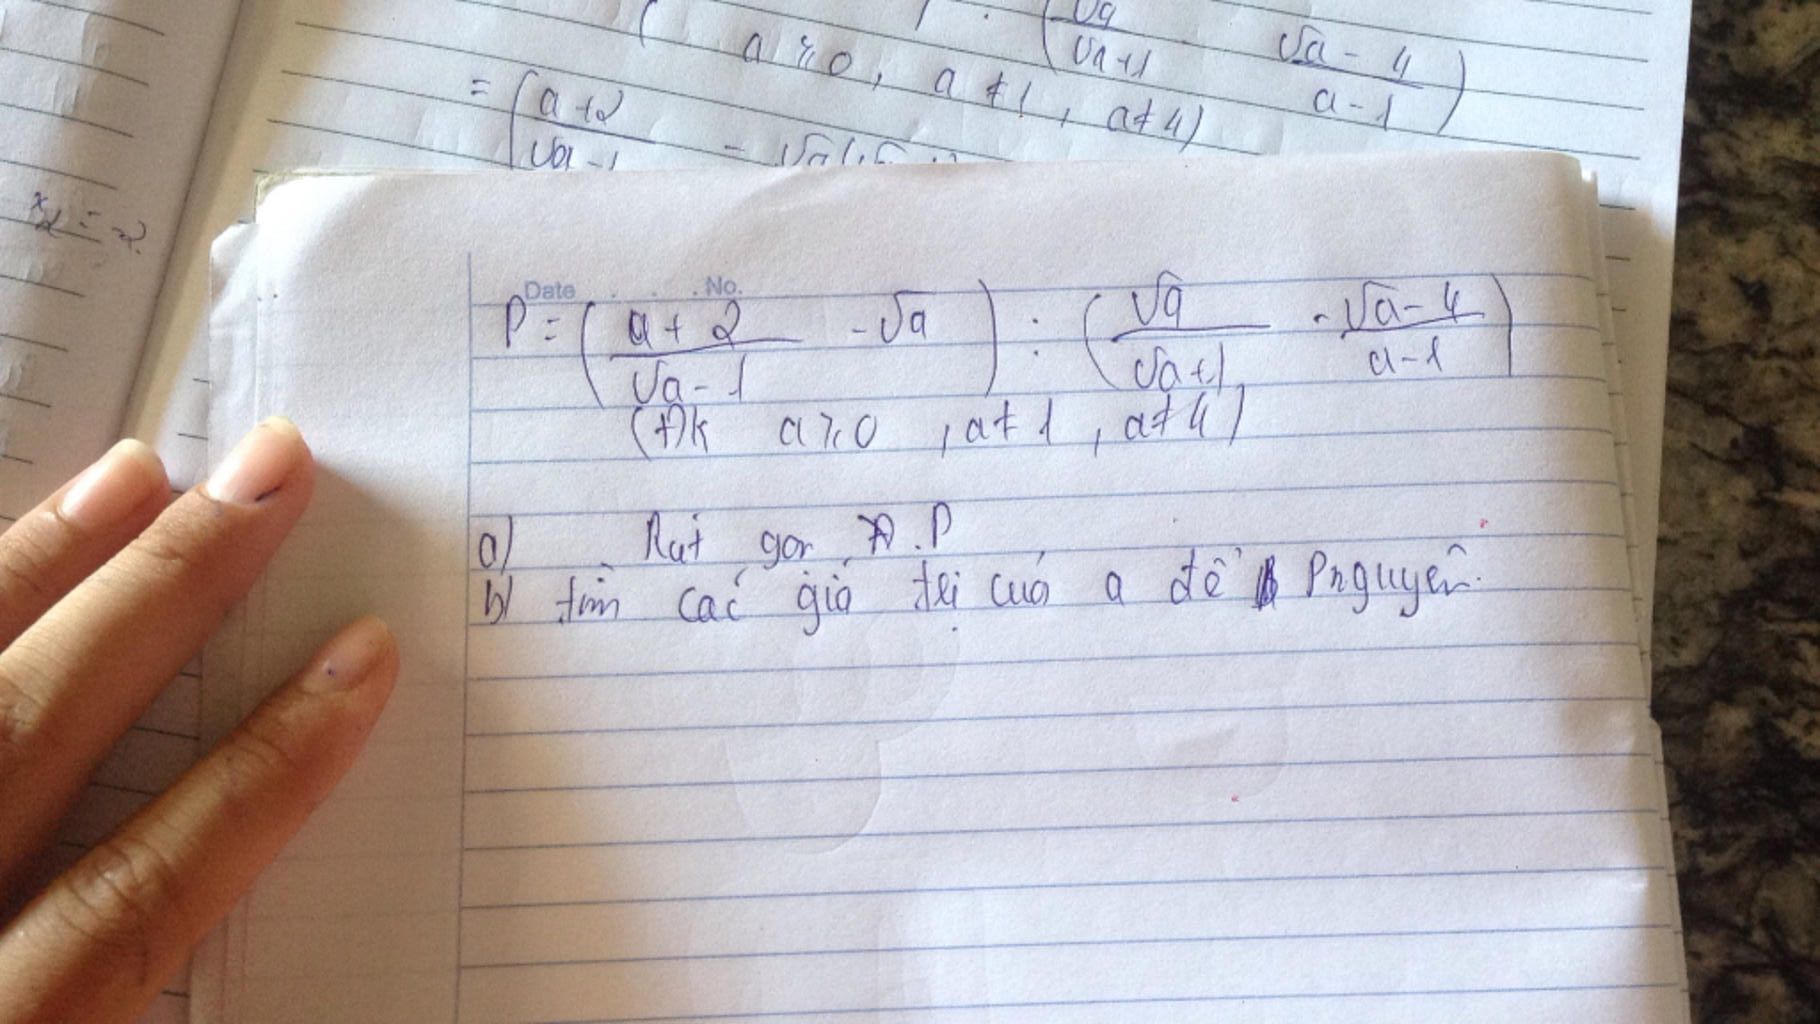 √a √a - 4
( ) : ( √a+1 a - 1 )
a ≥ 0, a ≠ 1, a ≠ 4)
= ( a + 2
√a - 1 - √a(
x₂ = -2
Date . . . No.
P = ( a + 2 / √a - 1 - √a ) : ( √a / √a + 1 - √a - 4 / a - 1 )
(đk a ≥ 0 , a ≠ 1 , a ≠ 4)
a) Rut gọn P
b) tìm các giá trị của a để P nguyên.